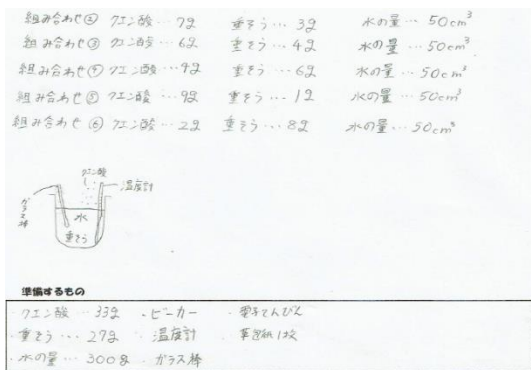 組み合わせ② クエン酸…7g 重そう…3g 水の量…50cm³
組み合わせ③ クエン酸…6g 重そう…4g 水の量…50cm³
組み合わせ④ クエン酸…4g 重そう…6g 水の量…50cm³
組み合わせ⑤ クエン酸…9g 重そう…1g 水の量…50cm³
組み合わせ⑥ クエン酸…2g 重そう…8g 水の量…50cm³
クエン酸
温度計
ガラス棒
水
重そう
準備するもの
・クエン酸…33g ・ビーカー ・電子てんびん
・重そう…27g ・温度計 ・薬包紙1枚
・水の量…300g ・ガラス棒